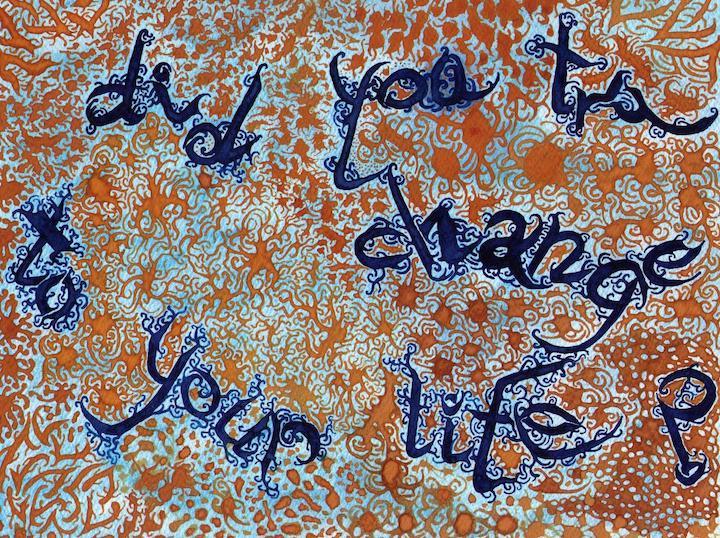 did you try
to change
your life ?